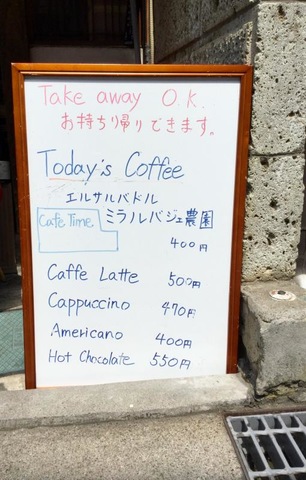 Take away O.K.
お持ち帰りできます。
Today's Coffee
エルサルバドル
Cafe Time.
ミラルバジェ農園
400円
Caffe Latte 500円
Cappuccino 470円
Americano 400円
Hot Chocolate 550円